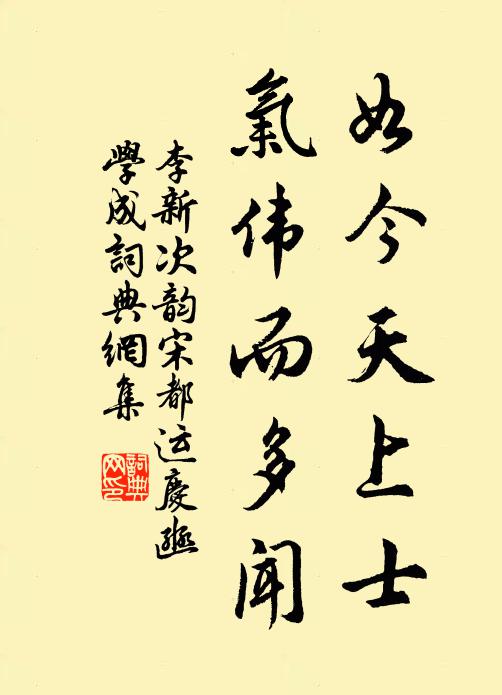 如今天上士
氣伟而多聞
李新次韵宋都运慶
學成詞典網集
詞典
网印